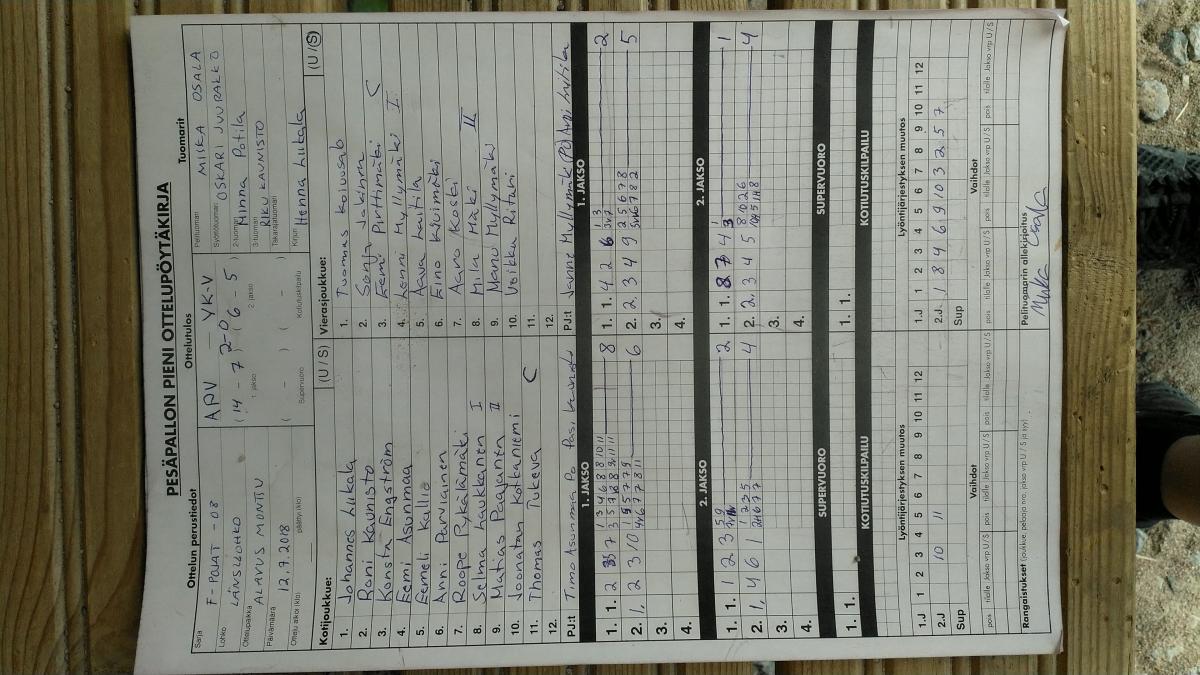 PESÄPALLON PIENI OTTELUPÖYTÄKIRJA
Ottelun perustiedot
Sarja F-POJAT -08
Lohko LÄNSILOHKO
Ottelupaikka ALAVUS MONTTU
Päivämäärä 12.7.2018
Ottelu alkoi (klo) päättyi (klo)
Ottelutulos
APV - YK-V
2-0
(14 - 7) (6 - 5)
1. jakso 2. jakso
( - ) ( - )
Supervuoro Kotiutuskilpailu
Tuomarit
Pelituomari MISKA OSALA
Syöttötuomari OSKARI JUURAKKO
2-tuomari Minna Potila
3-tuomari RIKU KAUNISTO
Takarajatuomari
Kirjuri Henna Liikala
Kotijoukkue: (U / S)
1. Johannes Liikala
2. Roni Kaunisto
3. Konsta Engström
4. Eemi Asunmaa
5. Eemeli Kallio
6. Anni Parviainen
7. Roope Pykälämäki
8. Selma Laukkanen I
9. Matias Paajanen II
10. Joonatan Kotkaniemi
11. Thomas Tukeva C
12.
PJ:t Timo Asunmaa Pasi
Vierasjoukkue: (U / S)
1. Tuomas Koivusalo
2. Sonja Jokinen
3. Eemi Pirttimäki C
4. Lenni Myllymäki I
5. Aava Laitila
6. Eino Kivimäki
7. Aaro Koski
8. Mila Mäki II
9. Manu Myllymäki
10. Veikka Ritari
11.
12.
PJ:t Janne Myllymäki (PJ) Anzi Laitila
1. JAKSO
1. JAKSO
1. 1. 2 3 7 8
2. 1, 2 3 10 6
3.
4.
1. 1. 4 2 6 2
2. 2, 3 4 9 5
3.
4.
2. JAKSO
2. JAKSO
1. 1. 1 2 3 2
2. 1, 4 6 1 4
3.
4.
1. 1. 8 7 4 1
2. 2, 3 4 5 4
3.
4.
SUPERVUORO
SUPERVUORO
1. 1.
1. 1.
KOTIUTUSKILPAILU
KOTIUTUSKILPAILU
Lyöntijärjestyksen muutos
1 2 3 4 5 6 7 8 9 10 11 12
1.J
2.J 10 11
Sup
Lyöntijärjestyksen muutos
1 2 3 4 5 6 7 8 9 10 11 12
1.J
2.J 1 8 4 6 9 10 3 2 5 7
Sup
Vaihdot
pois tilalle Jakso vrp U / S pois tilalle Jakso vrp U / S pois tilalle Jakso vrp U / S
Vaihdot
pois tilalle Jakso vrp U / S pois tilalle Jakso vrp U / S pois tilalle Jakso vrp U / S
Rangaistukset (joukkue, pelaaja nro, jakso vrp U / S ja syy)
Pelituomarin allekirjoitus
Miska Osala